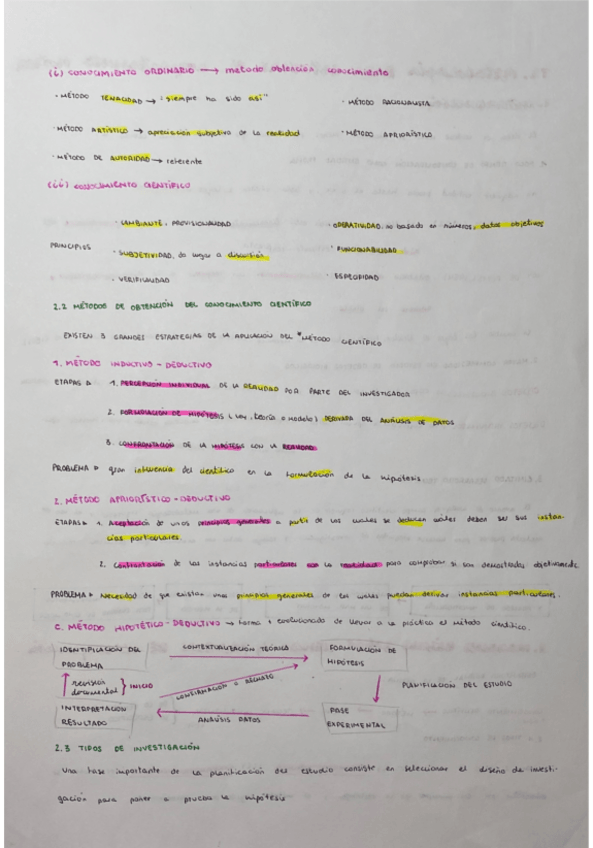 (i) CONOCIMIENTO ORDINARIO → metodo obtención conocimiento
· MÉTODO TENACIDAD → "siempre ha sido así"
· MÉTODO RACIONALISTA
· MÉTODO ARTÍSTICO → apreciación subjetiva de la realidad
· MÉTODO APRIORÍSTICO
· MÉTODO DE AUTORIDAD → referente
(ii) CONOCIMIENTO CIENTÍFICO
· CAMBIANTE, PROVISIONALIDAD
· OPERATIVIDAD, basado en números, datos objetivos
PRINCIPIOS
· SUBJETIVIDAD, da lugar a discusión
· FUNCIONABILIDAD
· VERIFICALIDAD
· ESPECIFIDAD
2.2 MÉTODOS DE OBTENCIÓN DEL CONOCIMIENTO CIENTÍFICO
EXISTEN 3 GRANDES ESTRATEGIAS DE LA APLICACIÓN DEL "MÉTODO CIENTÍFICO
1. MÉTODO INDUCTIVO - DEDUCTIVO
ETAPAS ▷ 1. PERCEPCIÓN INDIVIDUAL DE LA REALIDAD POR PARTE DEL INVESTIGADOR
2. FORMULACIÓN DE HIPÓTESIS (ley, teoría o modelo) DERIVADA DEL ANÁLISIS DE DATOS
3. CONFRONTACIÓN DE LA HIPÓTESIS CON LA REALIDAD
PROBLEMA ▷ gran influencia del científico en la formulación de la hipótesis
2. MÉTODO APRIORÍSTICO - DEDUCTIVO
ETAPAS ▷ 1. Aceptación de unos principios generales a partir de los cuales se deducen cuáles deben ser sus instan-
cias particulares.
2. Contrastación de las instancias particulares con la realidad para comprobar si son demostradas objetivamente
PROBLEMA ▷ Necesidad de que existan unos principios generales de los cuales puedan derivar instancias particulares.
C. MÉTODO HIPOTÉTICO - DEDUCTIVO → forma + evolucionado de llevar a la práctica el método científico.
IDENTIFICACIÓN DEL
PROBLEMA
CONTEXTUALIZACIÓN TEÓRICA
FORMULACIÓN DE
HIPÓTESIS
revisión
documental } INICIO
CONFIRMACIÓN O RECHAZO
PLANIFICACIÓN DEL ESTUDIO
INTERPRETACIÓN
RESULTADO
ANÁLISIS DATOS
FASE
EXPERIMENTAL
2.3 TIPOS DE INVESTIGACIÓN
Una fase importante de la planificación del estudio consiste en seleccionar el diseño de investi-
gación para poner a prueba la hipótesis